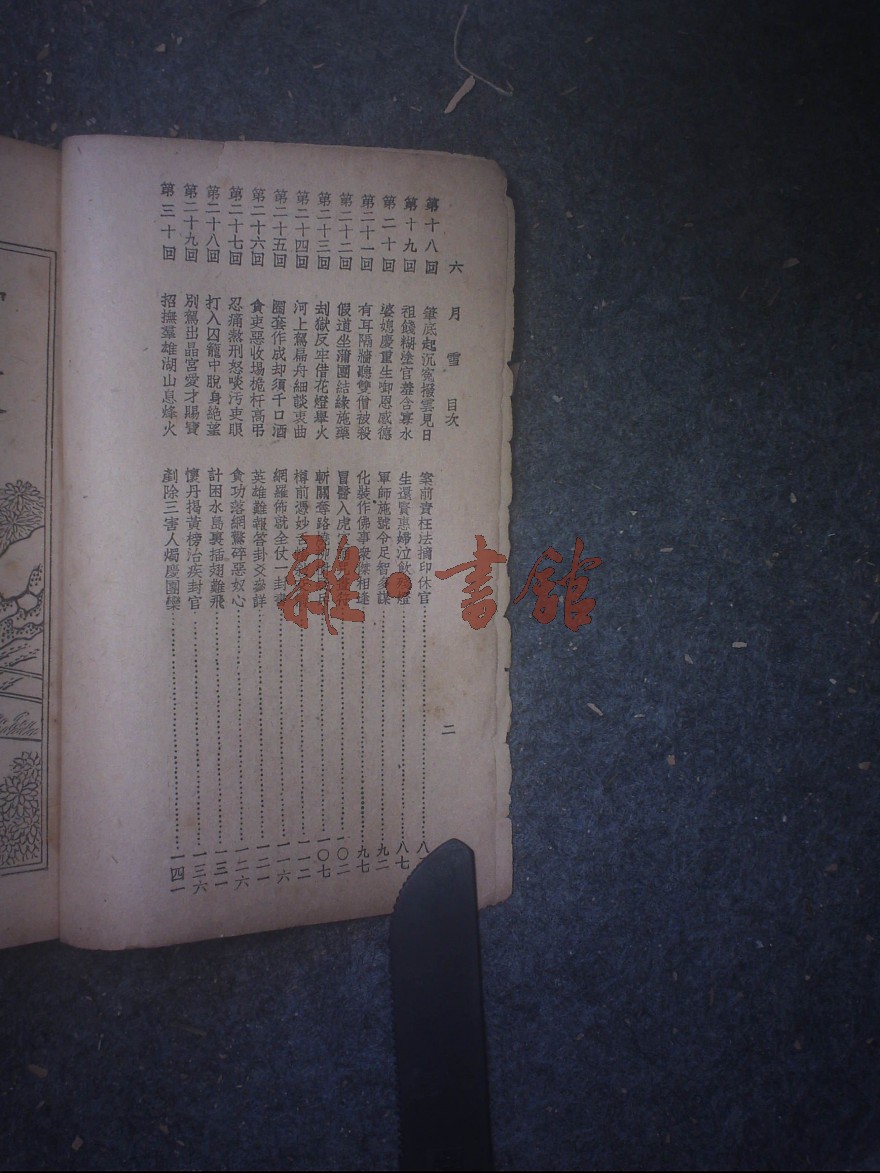 六月雪 目次 二
第十八回 筆底起沉寃撥雲見日 案前責枉法摘印休官
第十九回 祖餞糊塗官羞含寡水 生還賢惠婦泣飲
第二十回 婆媳慶重生啣恩感德 軍師施號令足智多謀 九二
第二十一回 有耳隔牆聽雙僧被殺 化裝作佛事衆傑相逢 九七
第二十二回 假道坐蒲團結緣施藥 冒醫入虎 一〇二
第二十三回 刦獄反牢借花燈舉火 斬關奪路 一〇七
第二十四回 河上駕扁舟細談衷曲 樽前憑妙舌 一一二
第二十五回 圈套作成却須千口酒 網羅佈就全仗一封書 一一六
第二十六回 貪吏惡收場桅杆高弔 英雄難報答卦爻參詳 一二一
第二十七回 忍痛熬刑怒啖污吏眼 貪功落網驚碎惡奴心 一二六
第二十八回 打入囚籠中脫身絕望 計困水島裏插翅難飛 一三一
第二十九回 別駕出晶宮愛才賜寶 懷丹揭黃榜治疾封官 一三六
第三十回 招撫羣雄湖山息烽火 剷除三害人燭慶團欒 一四一
八七
雜·書館